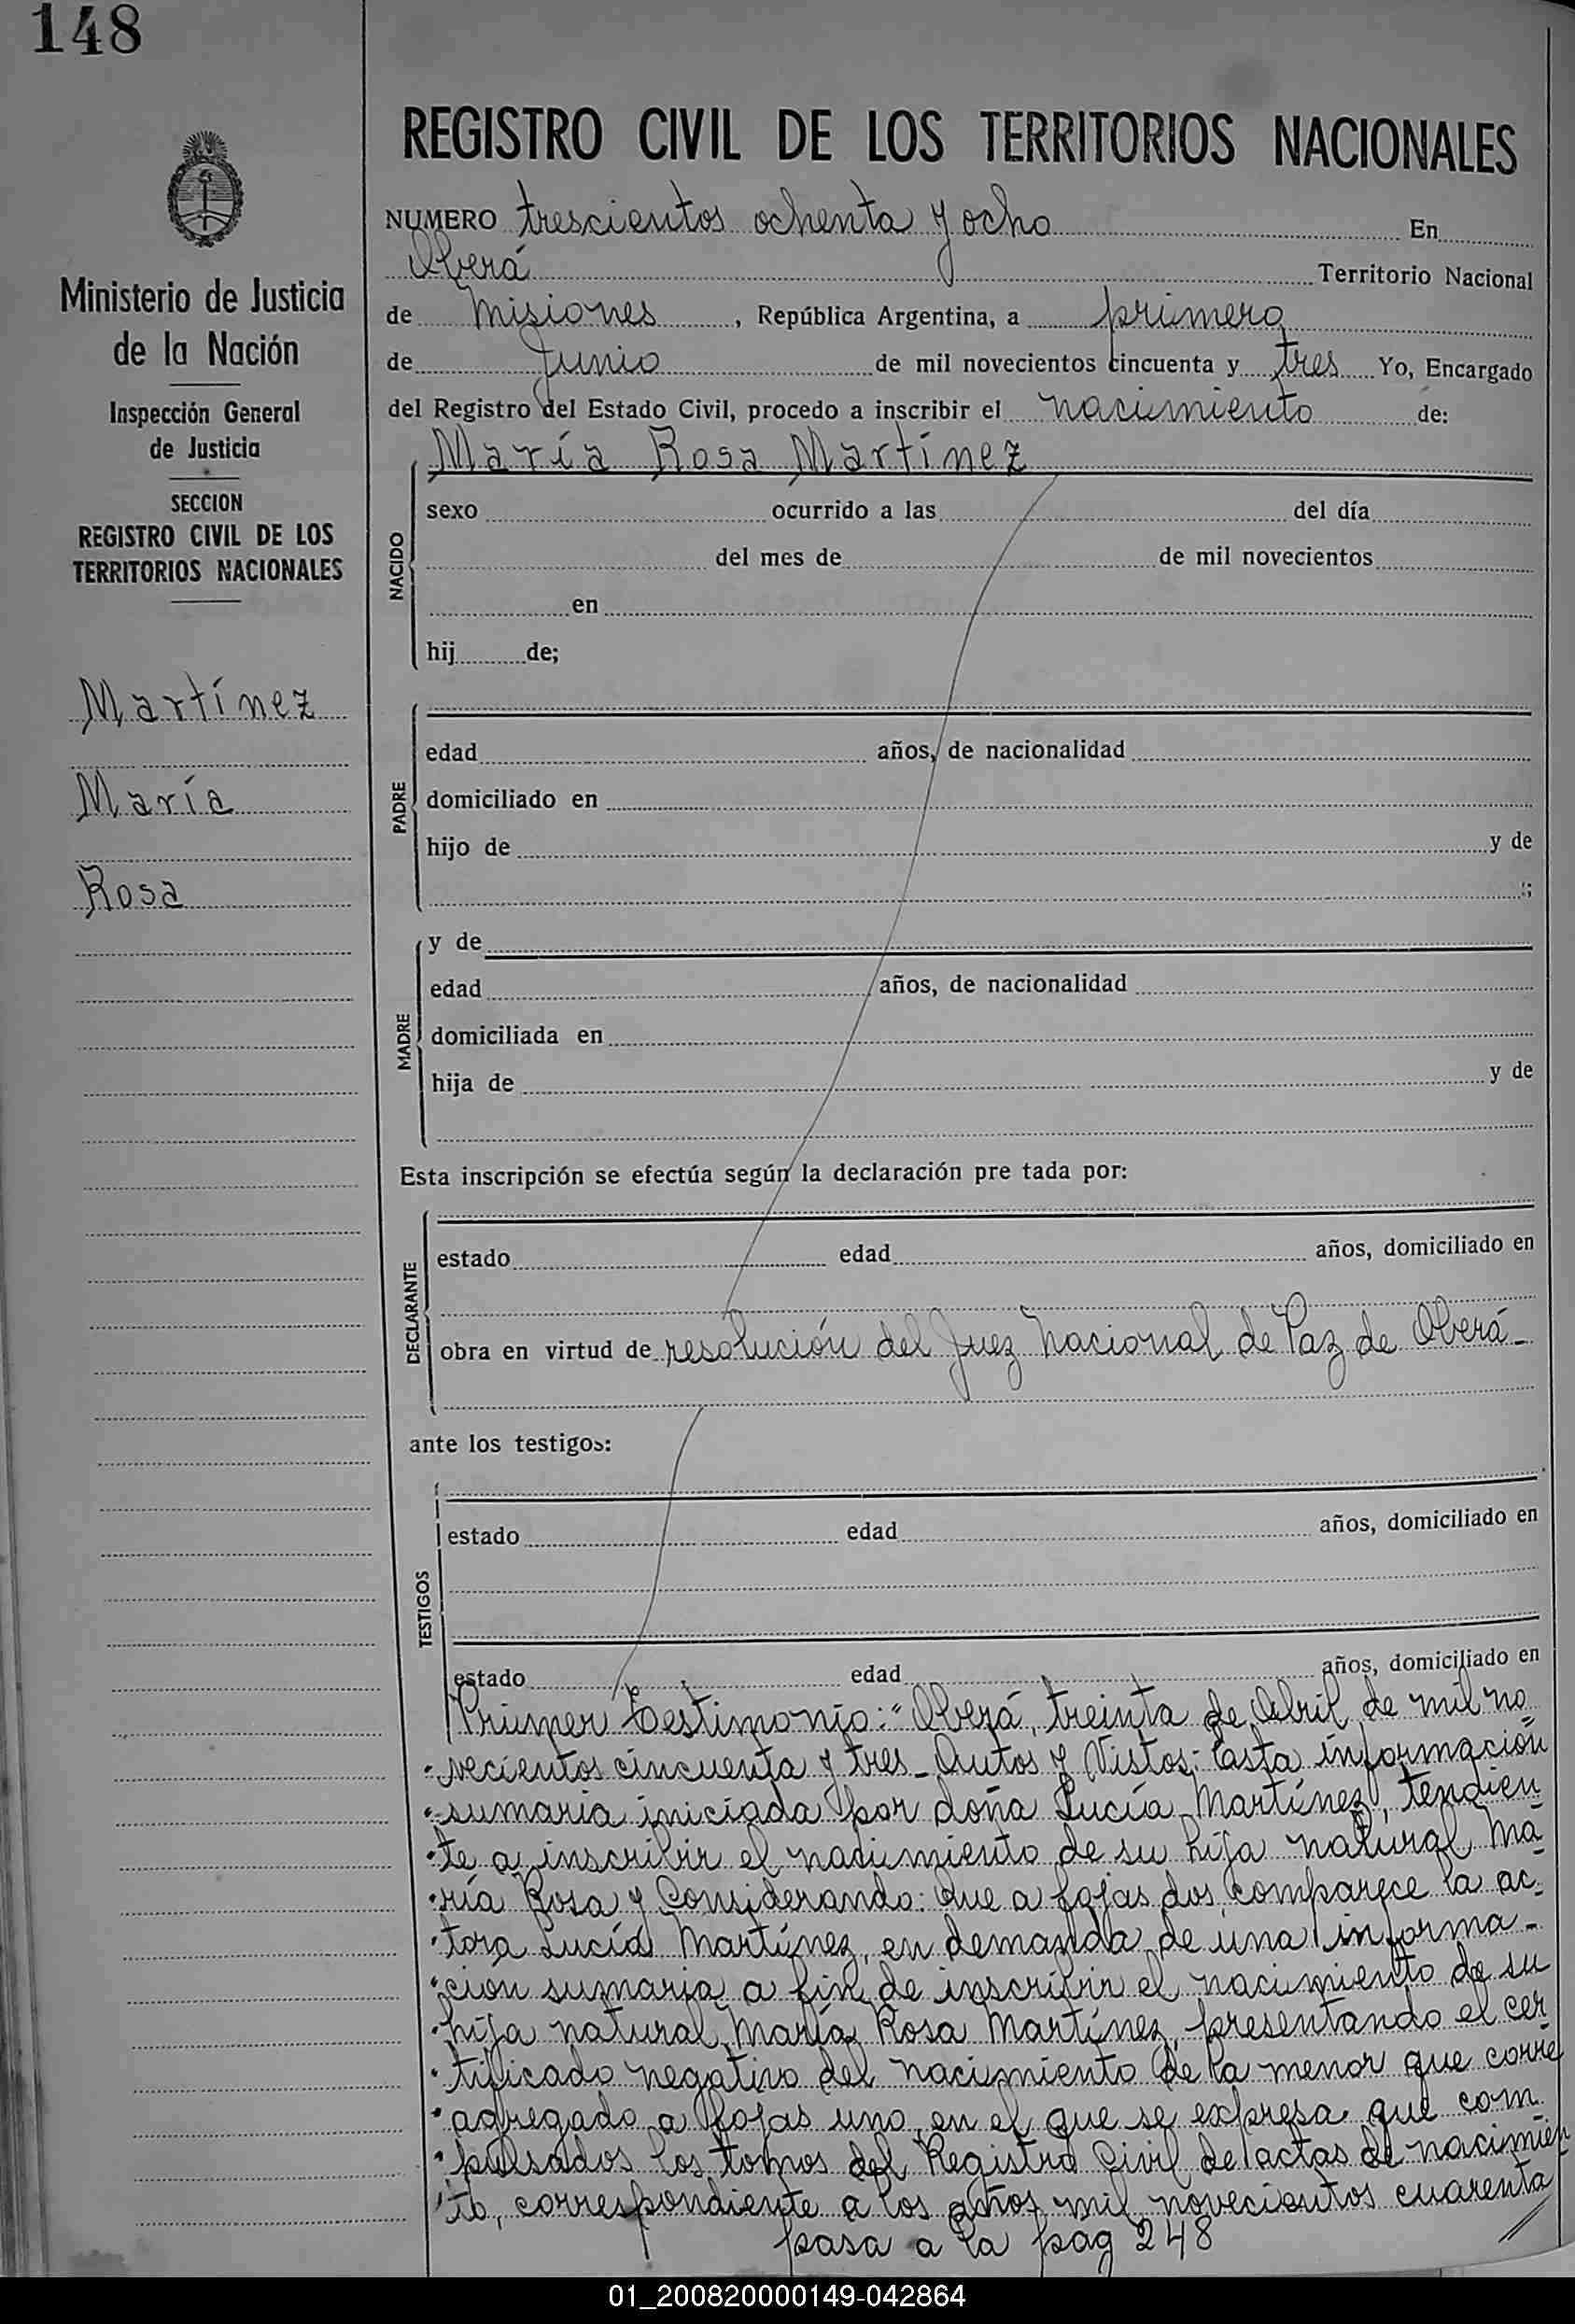 148
REGISTRO CIVIL DE LOS TERRITORIOS NACIONALES
NUMERO trescientos ochenta y ocho En
Oberá Territorio Nacional
de Misiones, República Argentina, a primero
de Junio de mil novecientos cincuenta y tres Yo, Encargado
del Registro del Estado Civil, procedo a inscribir el nacimiento de:
María Rosa Martínez
Ministerio de Justicia
de la Nación
Inspección General
de Justicia
SECCION
REGISTRO CIVIL DE LOS
TERRITORIOS NACIONALES
Martínez
María
Rosa
NACIDO
sexo ocurrido a las del día
del mes de de mil novecientos
en
hij de;
PADRE
edad años, de nacionalidad
domiciliado en
hijo de y de
;
MADRE
y de
edad años, de nacionalidad
domiciliada en
hija de y de
Esta inscripción se efectúa según la declaración pre tada por:
DECLARANTE
estado edad años, domiciliado en
obra en virtud de resolución del Juez Nacional de Paz de Oberá-
ante los testigos:
TESTIGOS
estado edad años, domiciliado en
estado edad años, domiciliado en
Primer Testimonio: "Oberá, treinta de Abril de mil no
vecientos cincuenta y tres - Autos y Vistos: Esta información
sumaria iniciada por doña Lucía Martínez, tendien
te a inscribir el nacimiento de su hija natural Ma
ría Rosa y Considerando: Que a fojas dos, comparece la ac
tora Lucía Martínez, en demanda de una informa-
ción sumaria a fin de inscribir el nacimiento de su
hija natural María Rosa Martínez, presentando el cer
tificado negativo del nacimiento de la menor que corre
agregado a fojas uno, en el que se expresa que com
pulsados los tomos del Registro Civil de actas de nacimien
to, correspondiente a los años mil novecientos cuarenta
pasa a la pag 248
01_200820000149-042864